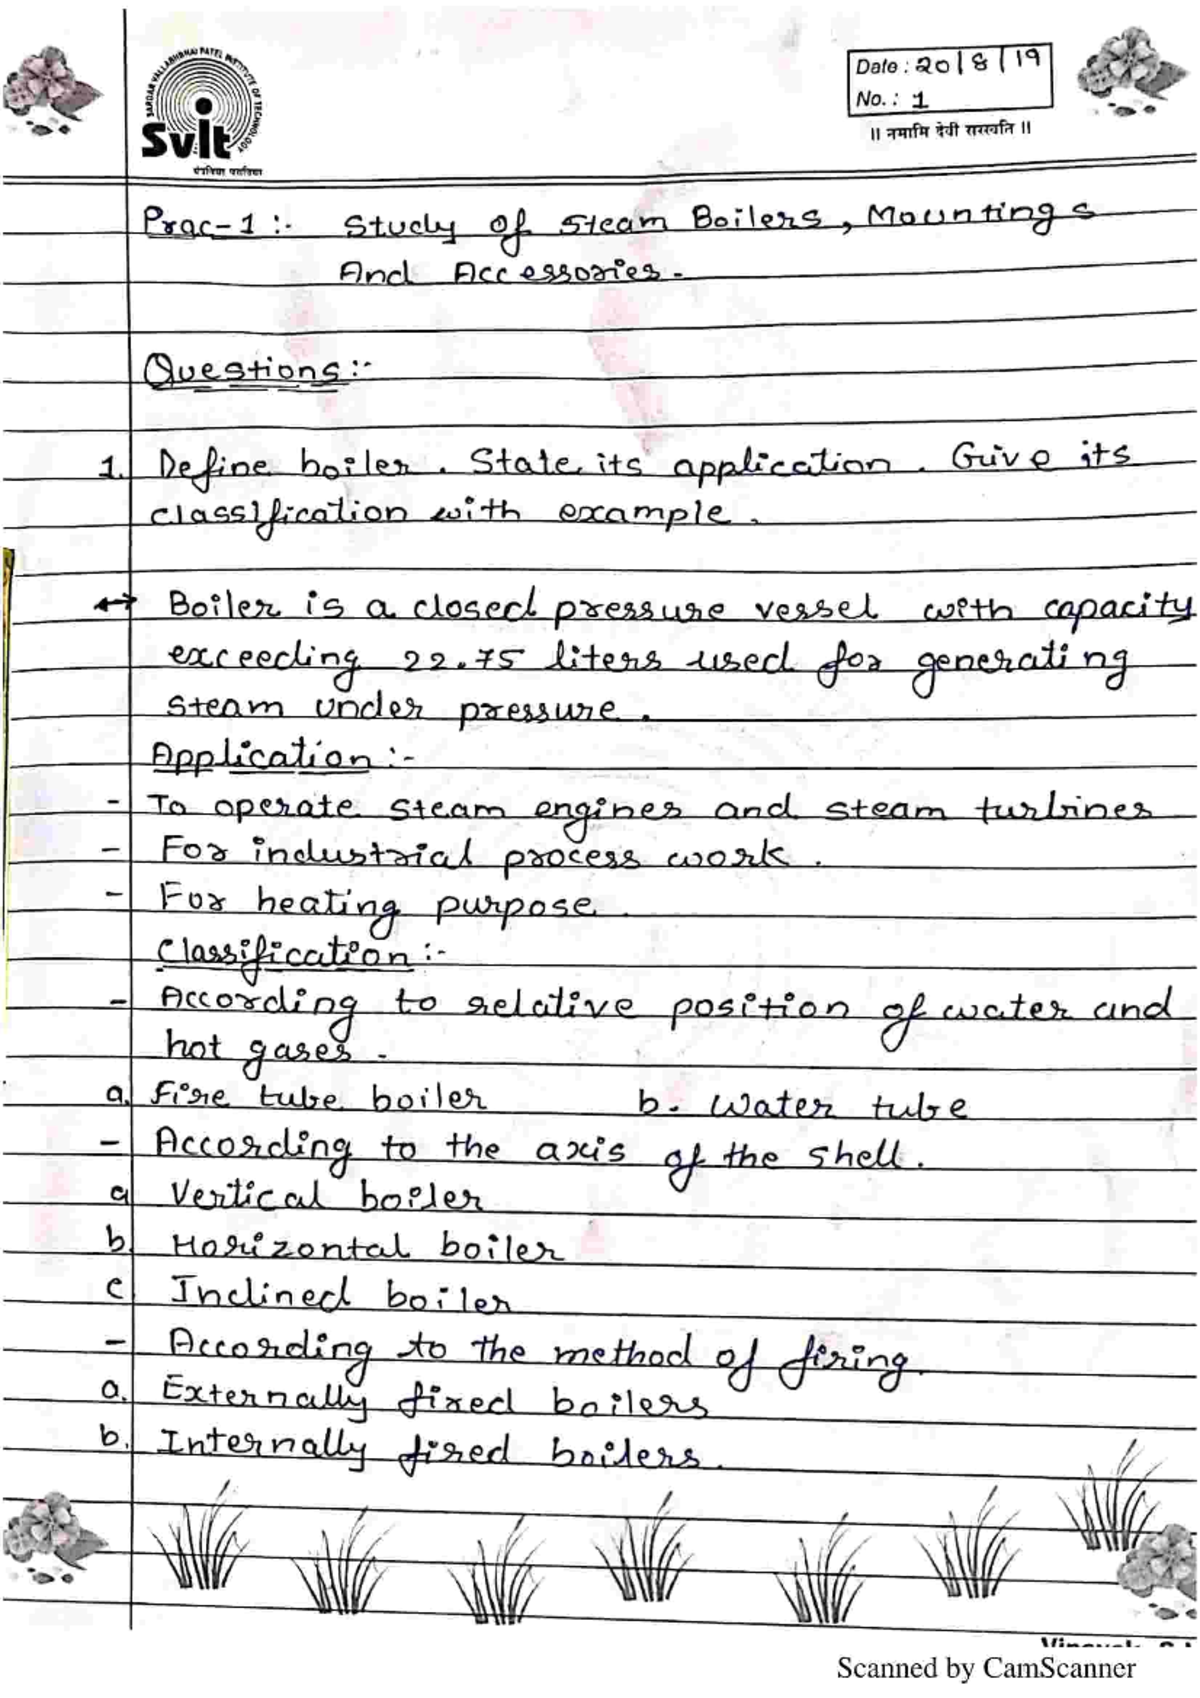 SARDAR VALLABHBHAI PATEL INSTITUTE OF TECHNOLOGY
SVIT
Date : 20/8/19
No. : 1
॥ नमामि देवी सरस्वति ॥
Prac-1 :- Study of Steam Boilers, Mountings
And Accessories.
Questions :-
1. Define boiler. State its application. Give its
classification with example.
↔ Boiler is a closed pressure vessel with capacity
exceeding 22.75 liters used for generating
steam under pressure.
Application :-
- To operate steam engines and steam turbines
- For industrial process work.
- For heating purpose.
Classification :-
- According to relative position of water and
hot gases.
a. Fire tube boiler b. Water tube
- According to the axis of the shell.
a Vertical boiler
b. Horizontal boiler
c Inclined boiler
- According to the method of firing.
a. Externally fired boilers
b. Internally fired boilers.
Scanned by CamScanner